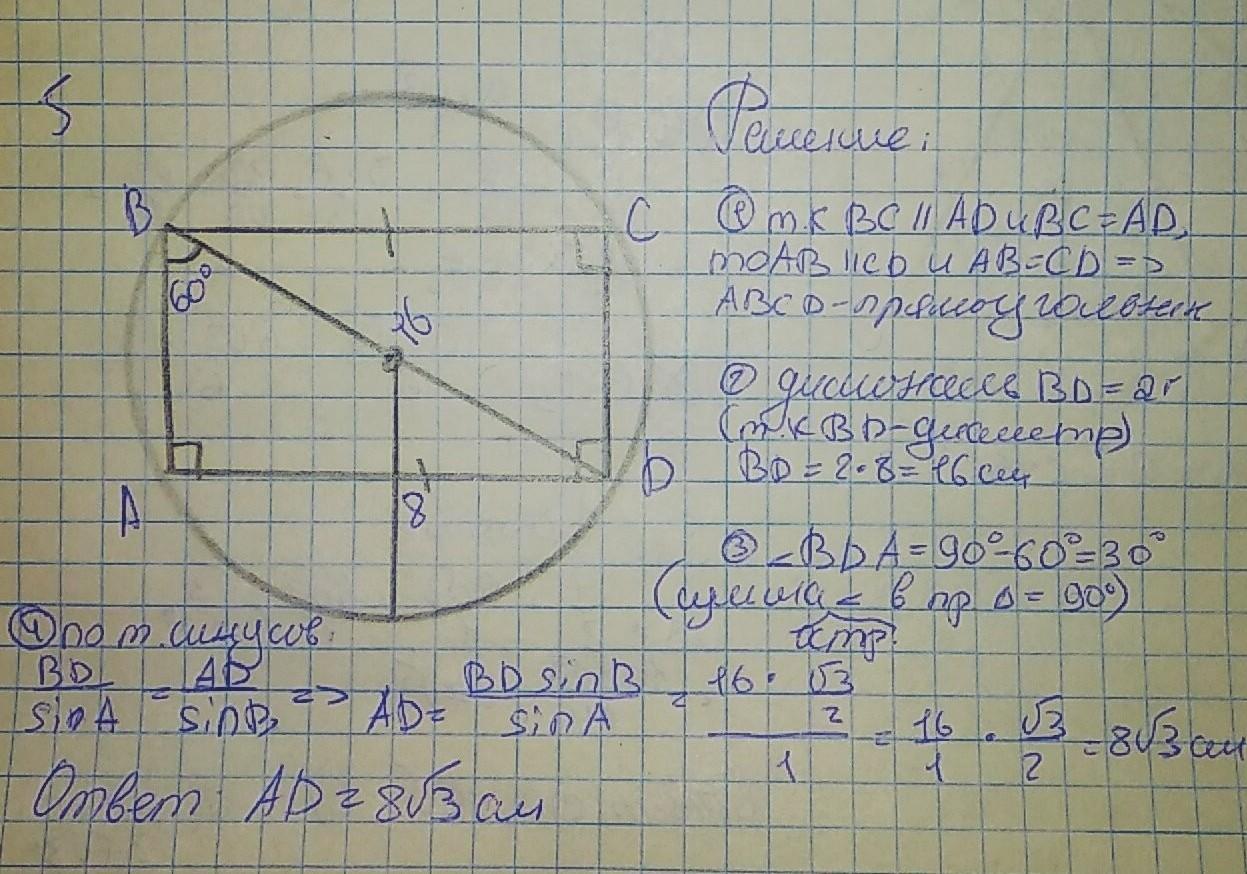 5
B
C
60°
16
A
8
D
Решение:
① т.к BC || AD и BC = AD,
то AB || CD и AB = CD =>
ABCD - прямоугольник
② диагональ BD = 2r
(т.к BD - диаметр)
BD = 2 · 8 = 16 см
③ ∠BDA = 90° - 60° = 30°
(сумма ∠ в пр Δ = 90°)
остр.
④ по т. синусов:
BD/sin A = AD/sin B => AD = BD sin B/sin A = (16 · √3/2)/1 = 16/1 · √3/2 = 8√3 см
Ответ AD = 8√3 см